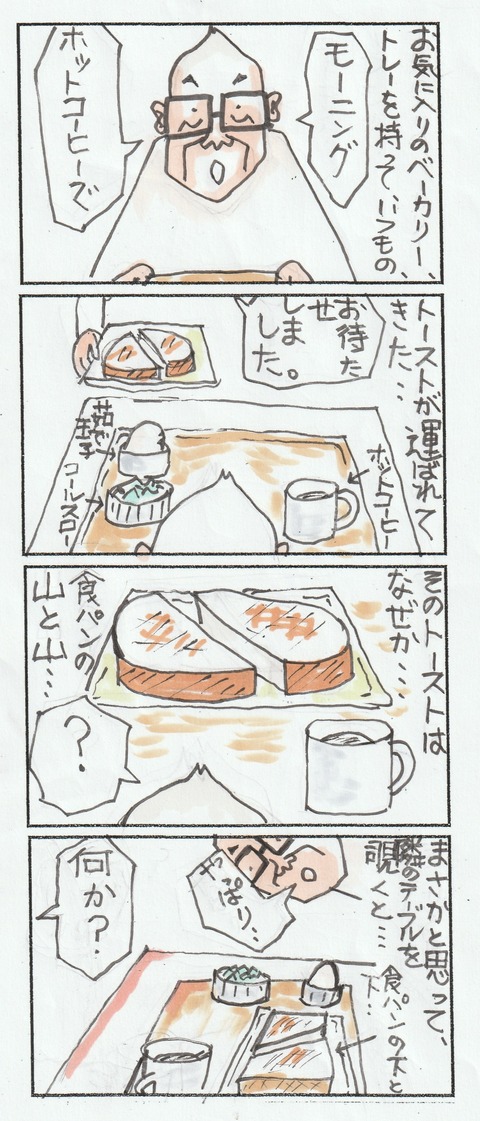 お気に入りのベーカリー、
トレーを持っていつもの、
モーニング
ホットコーヒーで
トーストが運ばれて
きた…
お待た
せ
しま
した。
ホットコーヒー
茹で
玉子
コールスロー
そのトーストは
なぜか…
食パンの
山と山…
？
まさかと思って、
隣のテーブルを
覗くと…
やっぱり、
何か？
食パンの下と
下…